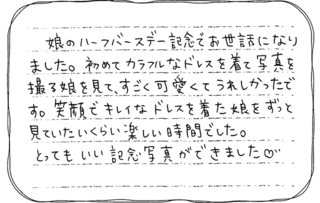 娘のハーフバースデー記念でお世話になり
ました。初めてカラフルなドレスを着て写真を
撮る娘を見て、すごく可愛くてうれしかったで
す。笑顔でキレイなドレスを着た娘をずっと
見ていたいくらい楽しい時間でした。
とってもいい記念写真ができました♡